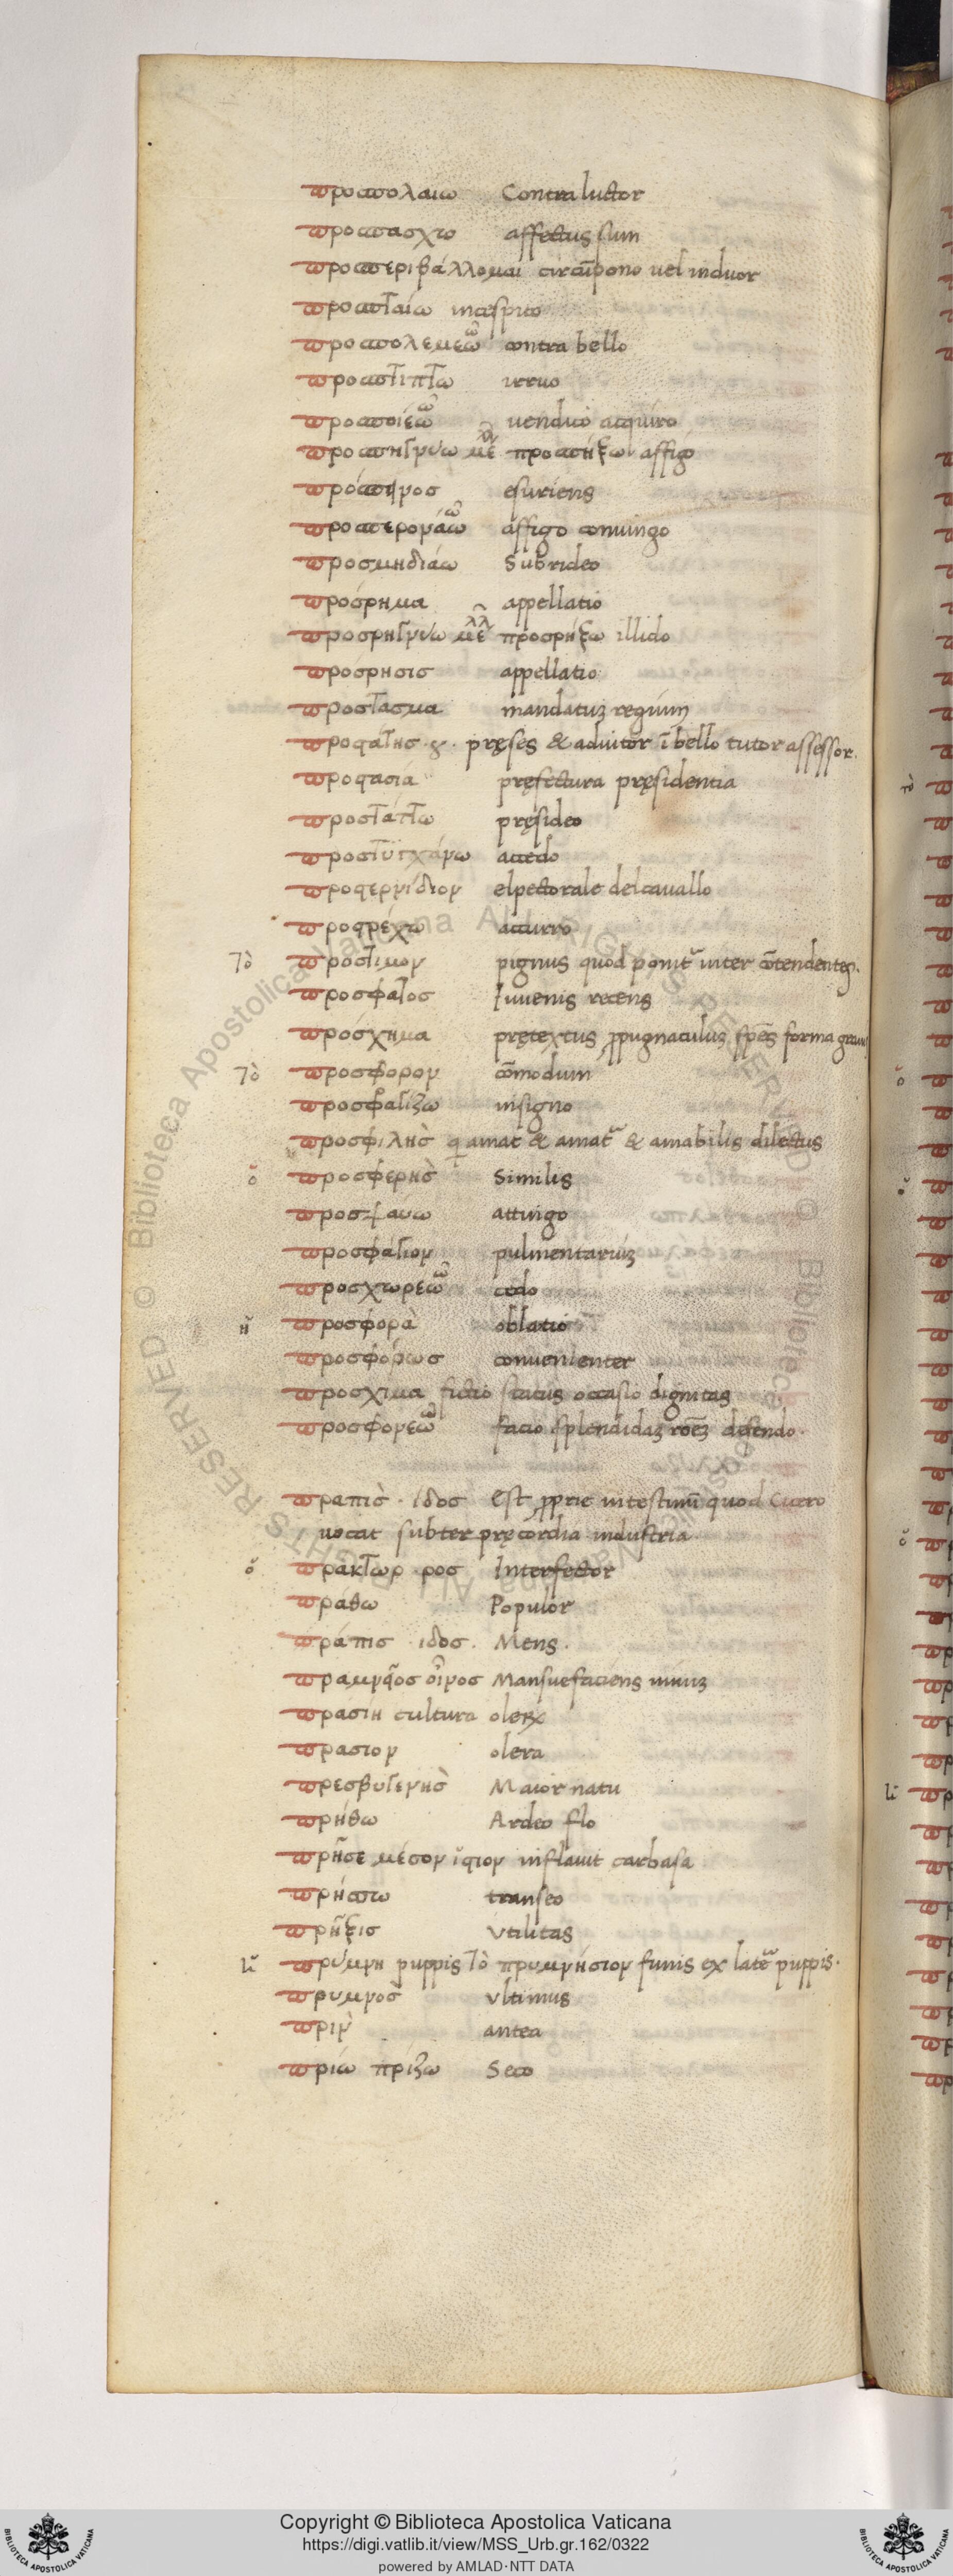 προσπολαιω Contra luctor
προσπασχω affectus sum
προσπεριβάλλομαι circūpono uel induor
προσπταίω incespito
προσπολεμεῶ contra bello
προσπιπτω irruo
προσποιέω uendico acquiro
προσπηγνύω μέλ προσπήξω affigo
πρόσπεινος esuriens
προσπερονάω affigo coniungo
προσμηδιάω Subrideo
πρόσρημα appellatio
προσρηγνύω μέλλ προσρήξω illido
προσρησις appellatio
προσταγμα mandatuȝ regium
προστατης pręses & adiutor ī bello tutor assessor.
προστασία pręfectura pręsidentia
προστάττω pręsideo
προστυγχάνω accedo
προστερνίδιον el pectorale del cauallo
προστρέχω accurro
τὸ προστιμον pignus quod ponit̄ inter cōtendentes.
προσφατος Iuuenis recens
πρόσχημα prętextus propugnaculuȝ spēs forma
τὸ προσφορον cōmodum
προσφατίζω insigno
προσφιλης qui amat & amat̄ & amabilis dilectus
ὁ προσφερης Similis
προσψαυω attingo
προσφάγιον pulmentariuȝ
προσχωρέω cedo
ἡ προσφορὰ oblatio
προσφόρως conuenienter
προσχιμα fictio status occasio dignitas
προσφονεω facio splendidaȝ defendo.
πραπὶς . ίδος Est proprie intestinū quod Cicero
uocat subter pręcordia industria.
ὁ πρακτωρ ρος Interfector
πράθω Populor
πράπις ιδος. Mens.
πραμνεῖος οἶνος Mansuefaciens uinuȝ
πρασίη cultura oleꝝ
πρασιον olera
πρεσβυγενὴς Maior natu
πρήθω Ardeo flo
πρῆσε μέσον ἵστιον inflauit carbasa
πρήσσω transeo
πρῆξις Vtilitas
πρύμνη puppis τὸ πρυμνήσιον funis ex late puppis.
πρυμνος Vltimus
πρὶν antea
πρίω πρίζω Seco
Copyright © Biblioteca Apostolica Vaticana
https://digi.vatlib.it/view/MSS_Urb.gr.162/0322
powered by AMLAD·NTT DATA